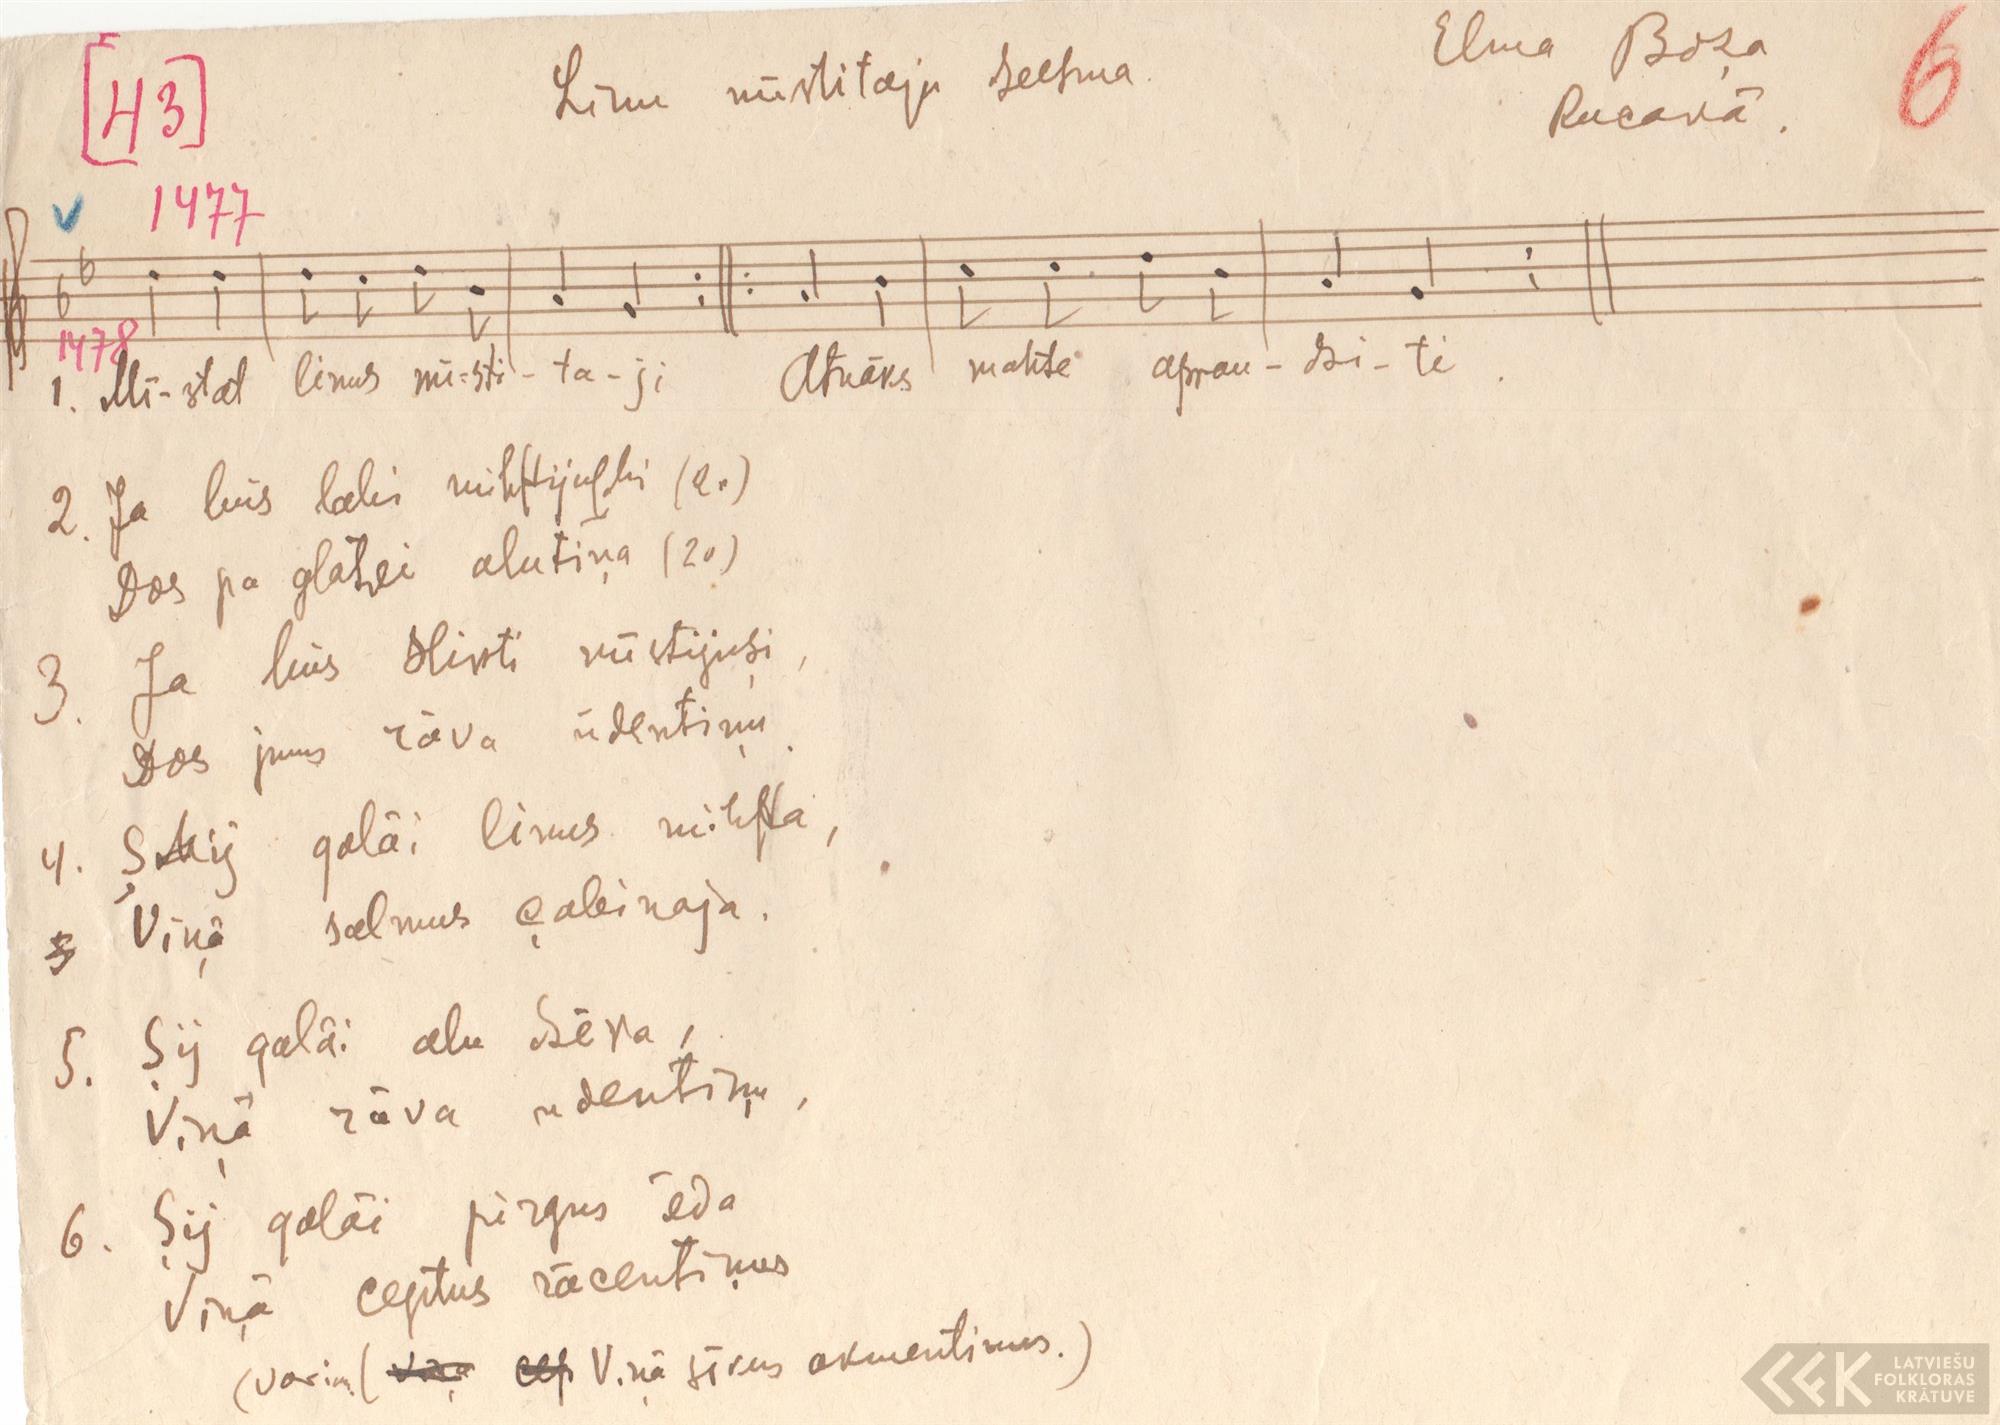 [43]
Linu mīstitaju dseesma.
Elma Boža
Rucavā.
6
1477
1478
1. Mī-stat linus mī-sti-ta-ji Atnāks mahte aprau-dsi-ti.
2. Ja būs labi mihstijuschi (2.)
Dos pa glāzei alutiņa (20)
3. Ja būs slikti mīstijuši,
Dos jums rāva ūdentiņu.
4. Šij galāi linus mihsta,
Viņā salmus čabinaja.
5. Šij galāi alu dsēra,
Viņā rāva udentiņu,
6. Šij galāi pirgus ēda
Viņā ceptus rācentiņus
(varia.( Viņā sīkus akmentinus.)
LATVIEŠU
FOLKLORAS
KRĀTUVE